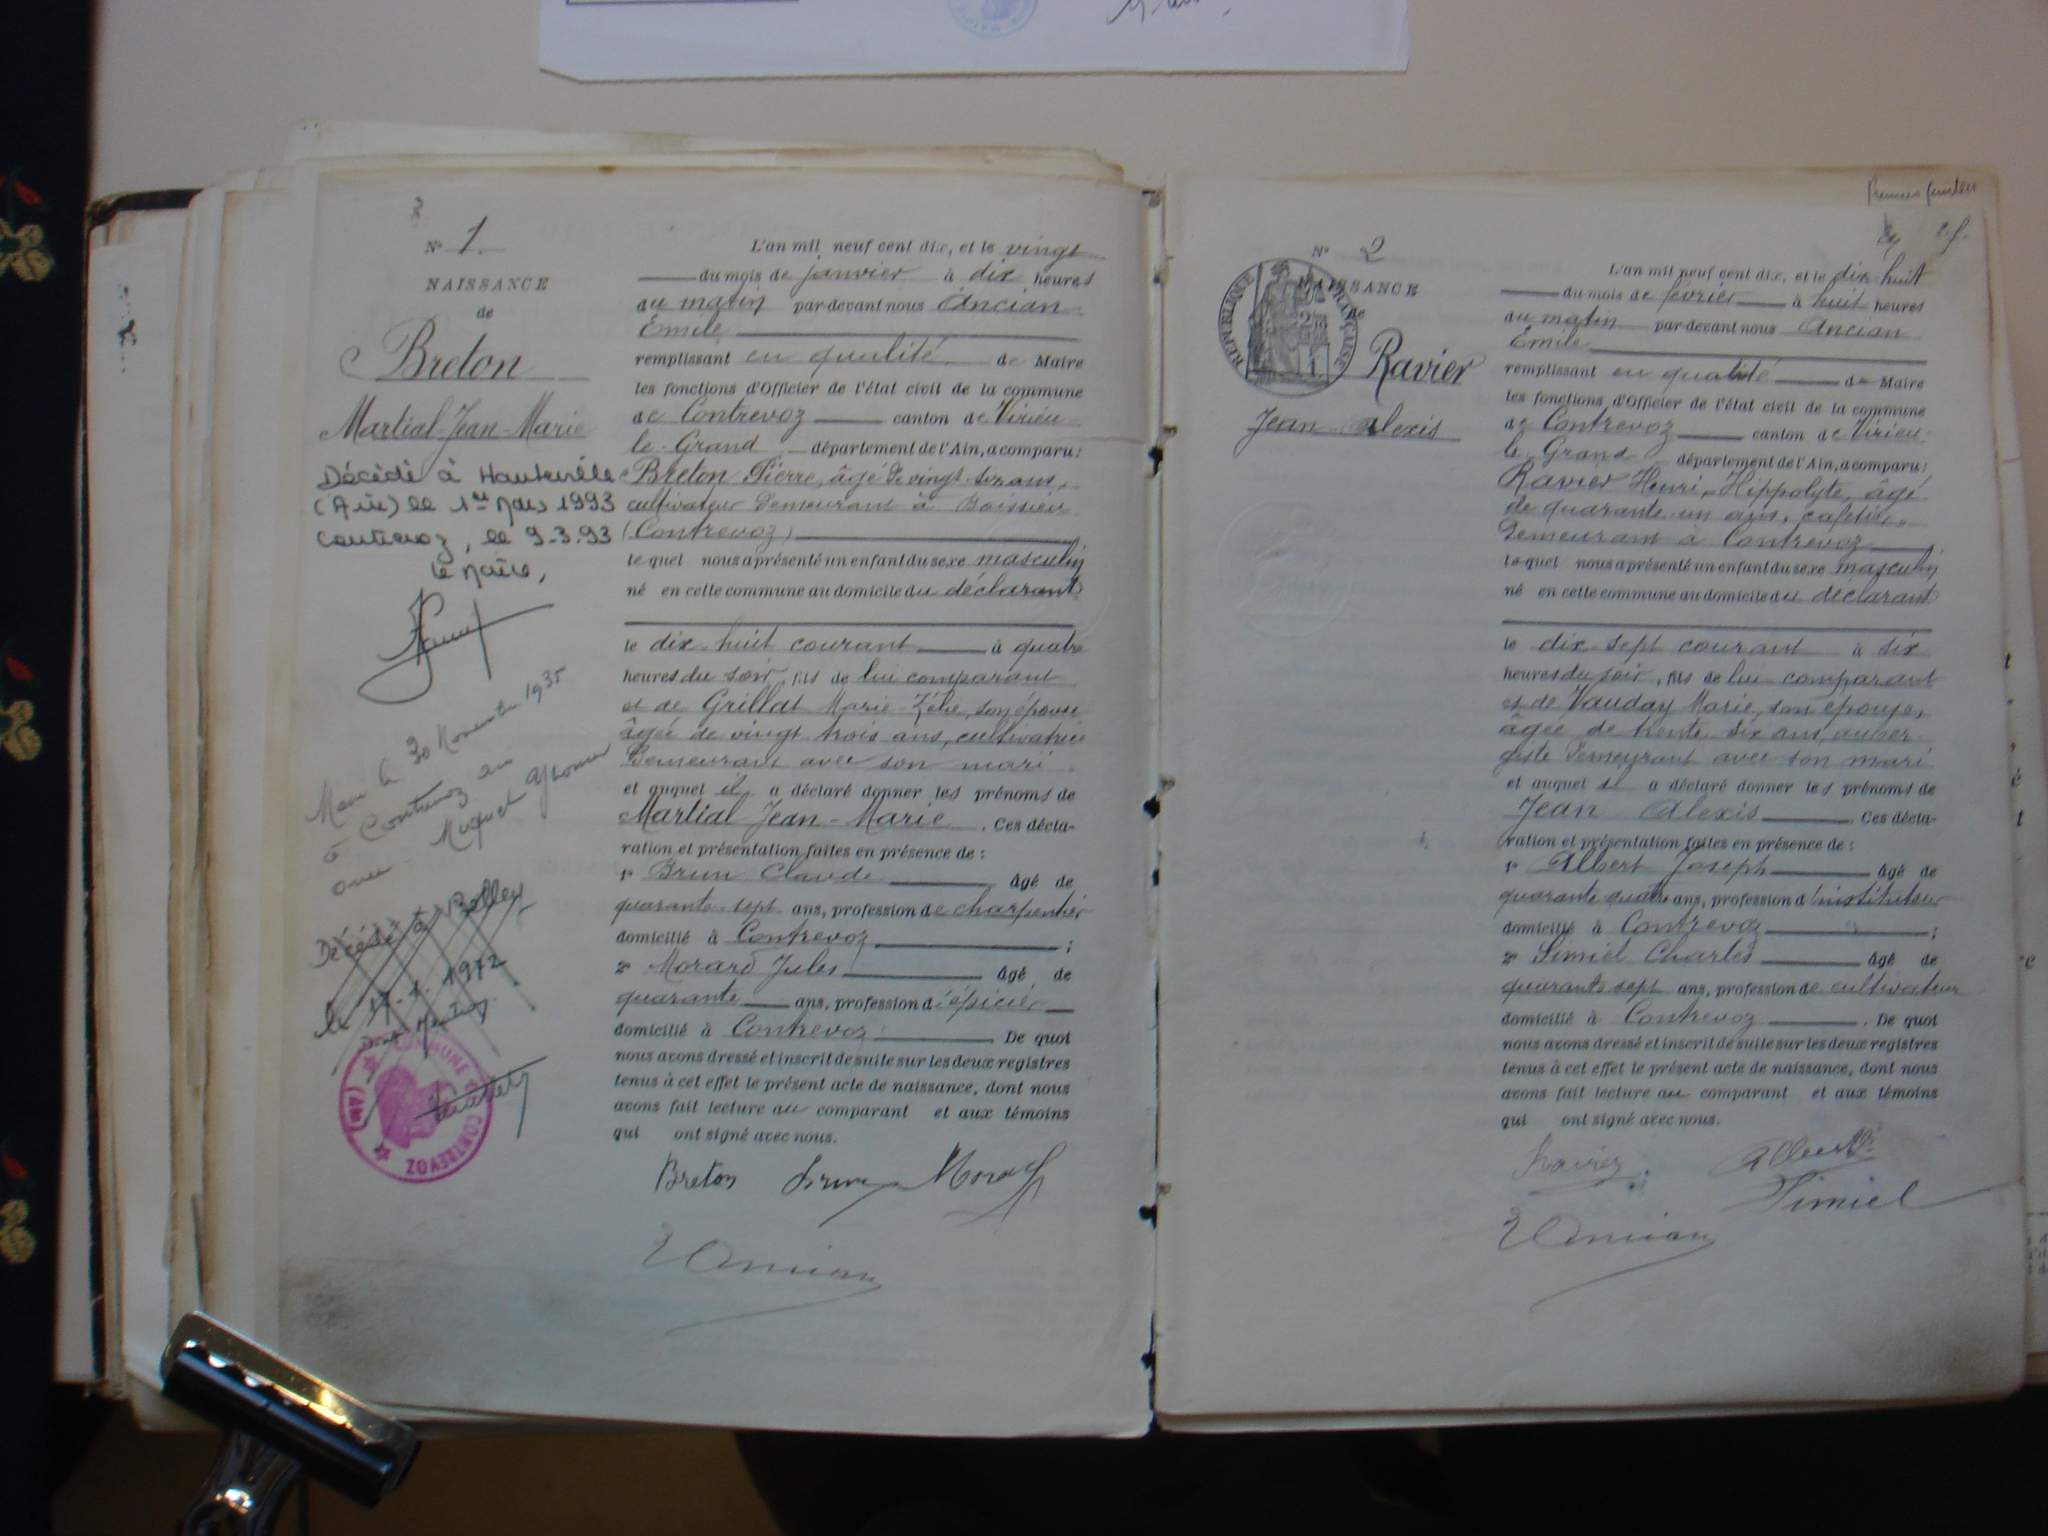 N° 1.
NAISSANCE
de
Breton
Martial-Jean-Marie
Décédé à Hauteville
(Ain) le 1er Mars 1993
Contrevoz, le 9-3.93
Le Maire,
Marié le 30 Novembre 1935
à Contrevoz
avec
Décédé à Belley
le 17-1.1972
COMMUNE
CONTREVOZ
(Ain)
L'an mil neuf cent dix, et le vingt
du mois de janvier à dix heures
du matin par-devant nous Ancian
Emile
remplissant en qualité de Maire
les fonctions d'Officier de l'état civil de la commune
de Contrevoz canton de Virieu-
le-Grand département de l'Ain, a comparu:
Breton Pierre, âgé de vingt ans,
cultivateur demeurant à Boissieu
(Contrevoz)
lequel nous a présenté un enfant du sexe masculin
né en cette commune au domicile du déclarant
le dix-huit courant à quatre
heures du soir, fils de lui comparant
et de Grillat Marie-Zélie, son épouse
âgée de vingt trois ans, cultivatrice
demeurant avec son mari.
et auquel il a déclaré donner les prénoms de
Martial Jean-Marie. Ces décla-
ration et présentation faites en présence de:
1° Brun Claude âgé de
quarante-sept ans, profession de charpentier
domicilié à Contrevoz;
2° Morard Jules âgé de
quarante ans, profession d'épicier
domicilié à Contrevoz. De quoi
nous avons dressé et inscrit de suite sur les deux registres
tenus à cet effet le présent acte de naissance, dont nous
avons fait lecture au comparant et aux témoins
qui ont signé avec nous.
Breton Brun Morard
E Ancian
N° 2
NAISSANCE
de
REPUBLIQUE FRANÇAISE
Ravier
Jean-Alexis
L'an mil neuf cent dix, et le dix-huit
du mois de février à huit heures
du matin par-devant nous Ancian
Emile
remplissant en qualité de Maire
les fonctions d'Officier de l'état civil de la commune
de Contrevoz canton de Virieu-
le-Grand département de l'Ain, a comparu:
Ravier Henri-Hippolyte, âgé
de quarante-un ans, cafetier,
demeurant à Contrevoz
lequel nous a présenté un enfant du sexe masculin
né en cette commune au domicile du déclarant
le dix-sept courant à six
heures du soir, fils de lui comparant
et de Vauday Marie, son épouse,
âgée de trente-six ans, auber-
giste demeurant avec son mari
et auquel il a déclaré donner les prénoms de
Jean-Alexis. Ces décla-
ration et présentation faites en présence de:
1° Albert Joseph âgé de
quarante quatre ans, profession d'instituteur
domicilié à Contrevoz;
2° Simiel Charles âgé de
quarante-sept ans, profession de cultivateur
domicilié à Contrevoz. De quoi
nous avons dressé et inscrit de suite sur les deux registres
tenus à cet effet le présent acte de naissance, dont nous
avons fait lecture au comparant et aux témoins
qui ont signé avec nous.
Ravier Albert
Simiel
E Ancian